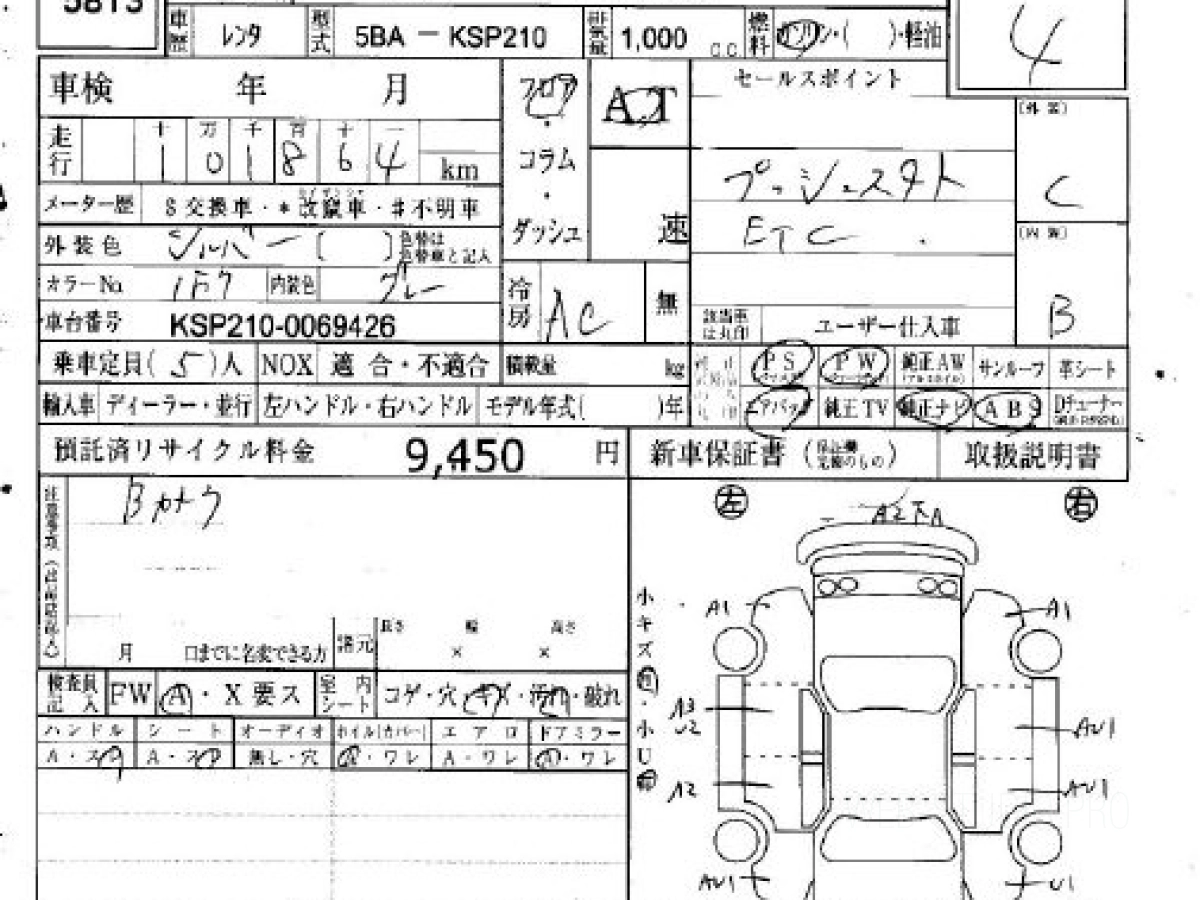 5813
車歴 レンタ 型式 5BA － KSP210 排気量 1,000 C.C. 燃料 ガソリン・( )・軽油
4
車検 年 月
フロア・コラム・ダッシュ
AT
速
セールスポイント
プッシュスタト
ETC
(外装)
C
(内装)
B
走行 十 万 千 百 十 一
1 0 1 8 6 4 km
メーター歴 $交換車・*改竄車・#不明車
外装色 シルバー ( ) 色替は色替車と記入
カラーNo. 1F7 内装色 グレー
冷房 AC 無
車台番号 KSP210-0069426
該当車は丸印 ユーザー仕入車
乗車定員(5)人 NOX 適合・不適合 積載量 kg
PS PW 純正AW サンルーフ 革シート
輸入車 ディーラー・並行 左ハンドル・右ハンドル モデル年式( )年
エアバッグ 純正TV 純正ナビ ABS Dチューナー
預託済リサイクル料金 9,450 円
新車保証書 取扱説明書
注意事項
Bカメラ
左 右
A2下A
小キズ
A1 A1
月 日までに名変できる方 諸元 長さ × 幅 × 高さ
検査員記入 FW A・X要ス 室内シート コゲ・穴・キズ・汚れ・破れ
A3
U2
小U
AU1
ハンドル シート オーディオ ホイル(カバー) エアロ ドアミラー
A・スレ A・スレ 無し・穴 A・ワレ A・ワレ A・ワレ
A2 AU1
AU1 U1